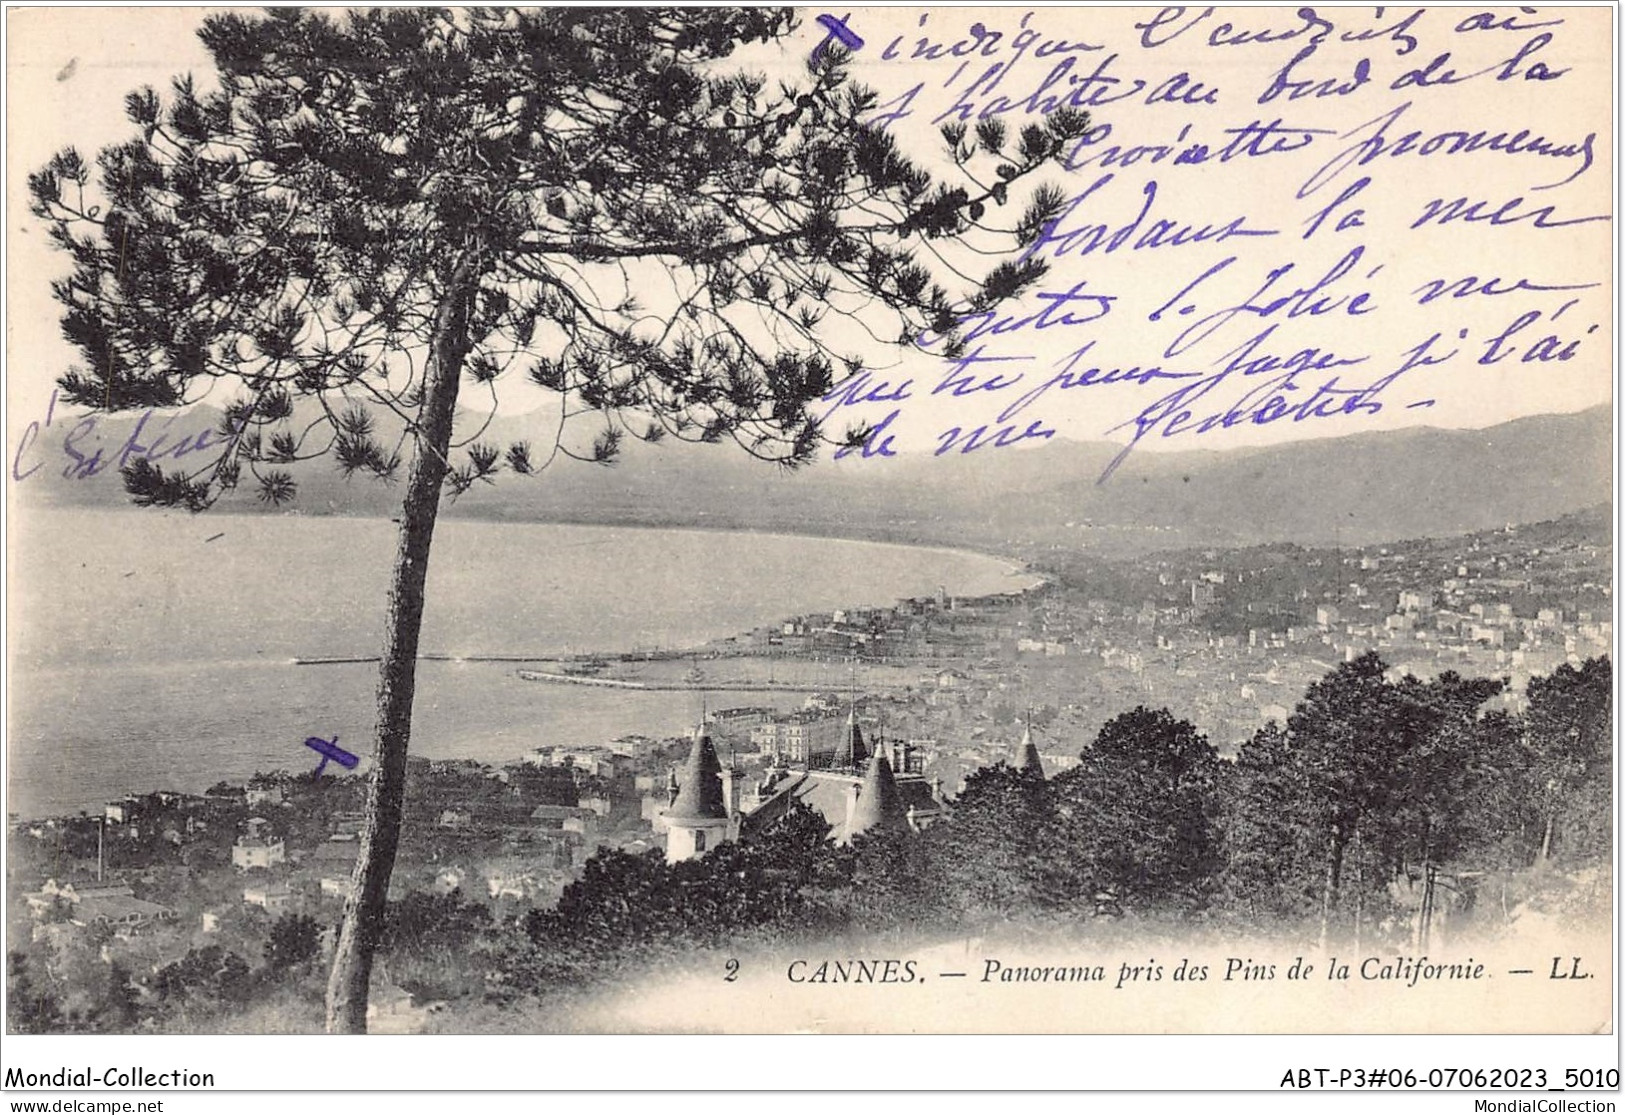 X indique l'endroit où
j'habite au bord de la
Croisette promenade
bordant la mer
note la jolie vue
que tu peux juger si l'ai
de mes fenêtres -
l'Estérel
2 CANNES. — Panorama pris des Pins de la Californie. — LL.
Mondial-Collection
ABT-P3#06-07062023_5010
delcampe.net
MondialCollection